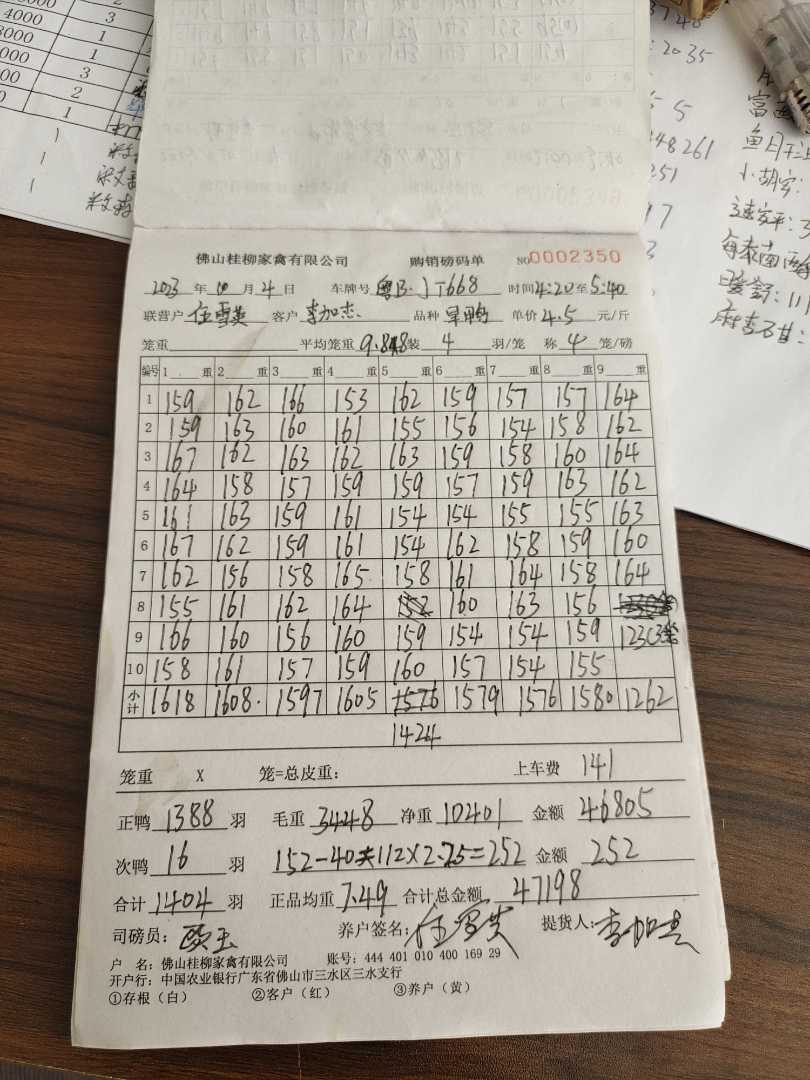 佛山桂柳家禽有限公司 购销磅码单 NO0002350
2023 年 10 月 4 日 车牌号 粤B·JT668 时间 4:20 至 5:40
联营户 任雪英 客户 李加志 品种 旱鸭 单价 4.5 元/斤
笼重 平均笼重 9.848 装 4 羽/笼 称 4 笼/磅
编号 1 重 2 重 3 重 4 重 5 重 6 重 7 重 8 重 9 重
1 159 162 166 153 162 159 157 157 164
2 159 163 160 161 155 156 154 158 162
3 167 162 163 162 163 159 158 160 164
4 164 158 157 159 159 157 159 163 162
5 161 163 159 161 154 154 155 155 163
6 167 162 159 161 154 162 158 159 160
7 162 156 158 165 158 161 164 158 164
8 155 161 162 164 152 160 163 156
9 166 160 156 160 159 154 154 159 123(3笼
10 158 161 157 159 160 157 154 155
小计 1618 1608· 1597 1605 1576 1579 1576 1580 1262
1424
笼重 X 笼=总皮重： 上车费 141
正鸭 1388 羽 毛重 3448 净重 10401 金额 46805
次鸭 16 羽 152-40=112X2.25=252 金额 252
合计 1404 羽 正品均重 7.49 合计总金额 47198
司磅员： 欧玉 养户签名： 任雪英 提货人： 李加志
户 名：佛山桂柳家禽有限公司 账号：444 401 010 400 169 29
开户行：中国农业银行广东省佛山市三水区三水支行
①存根（白） ②客户（红） ③养户（黄）
4000
3
1
3
2
1
2035
5 5
48261
251
富
小胡宇：